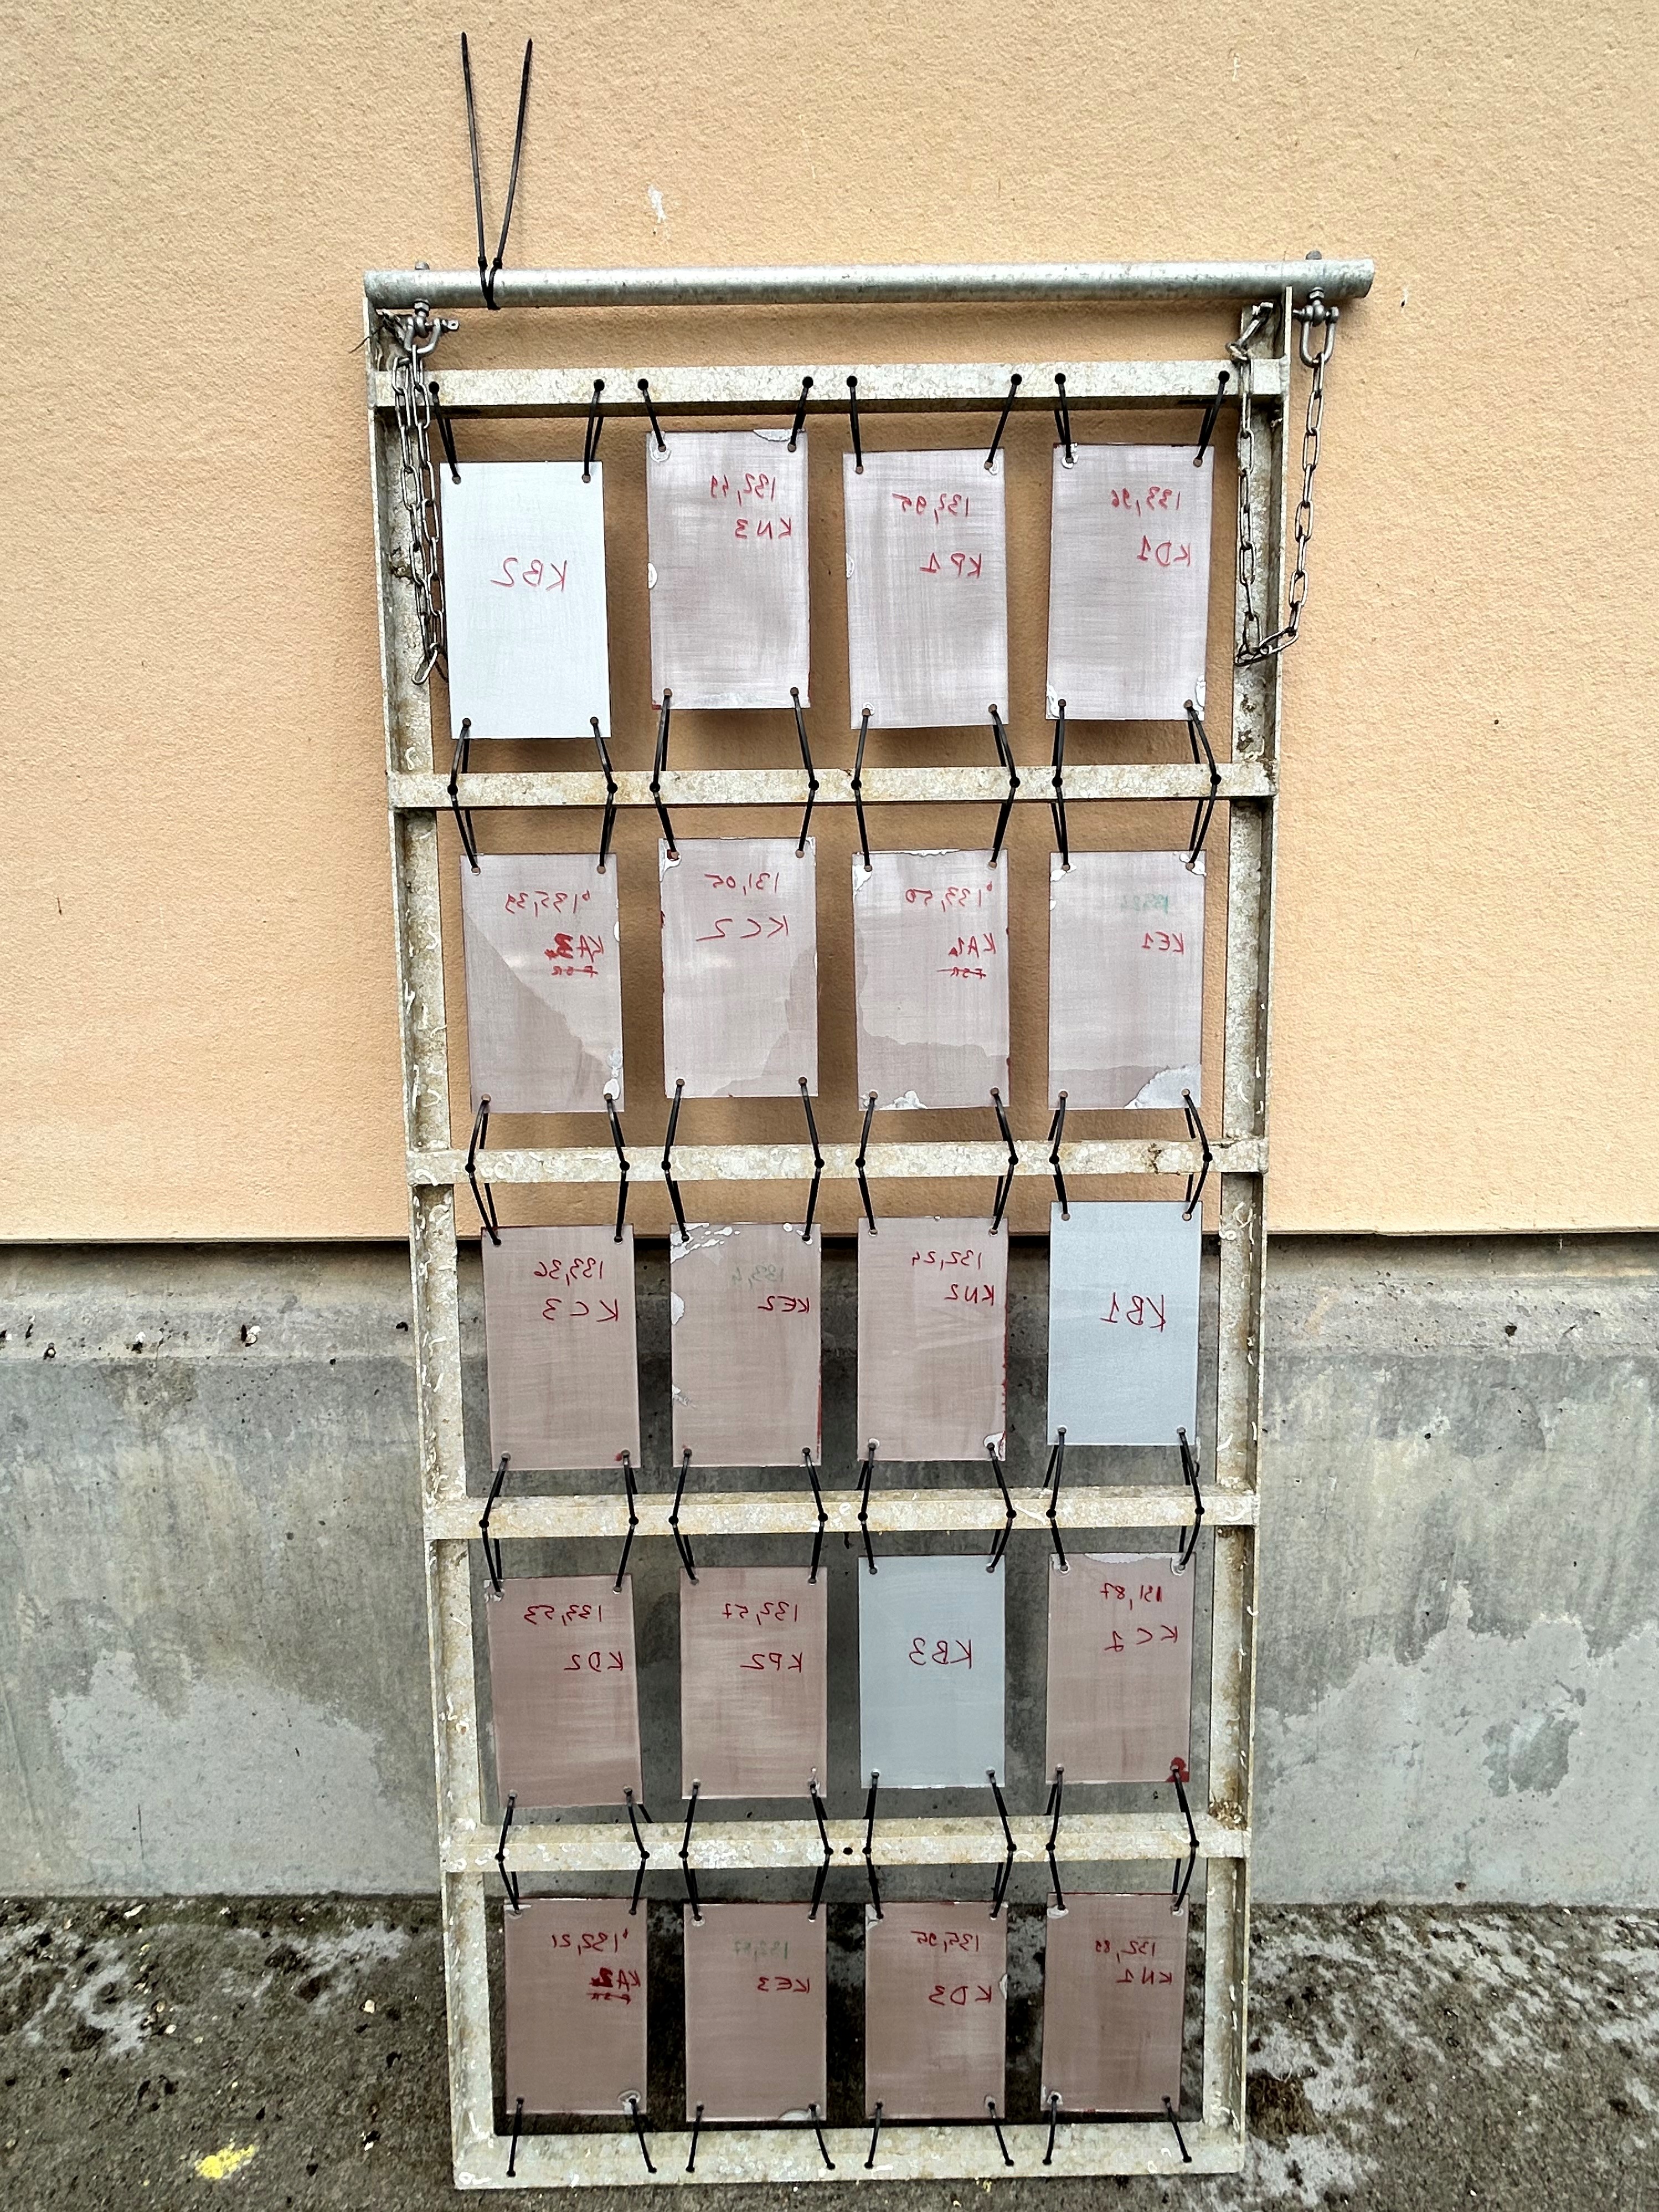 KB2
132,49
KN3
132,95
KP1
133,96
KD1
135,39
KA
131,05
KC2
133,50
KA1
KE1
133,36
KC3
KE2
132,24
KN2
KB1
133,53
KD2
132,57
KP2
KB3
131,87
KC1
132,21
KA
KE3
135,95
KD3
132,89
KN1